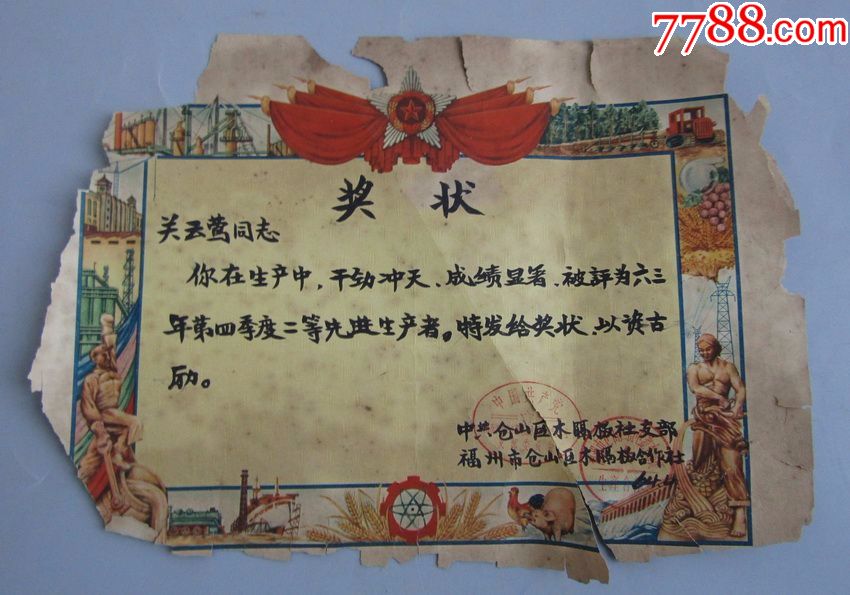 7788.com
奖 状
关云莺同志
你在生产中,干劲冲天、成绩显著、被評为六三
年第四季度二等先进生产者。特发给奖状、以资古
励。
中国共产党
中共仓山区木隔板社支部
福州市仓山区木隔板合作社
64.4